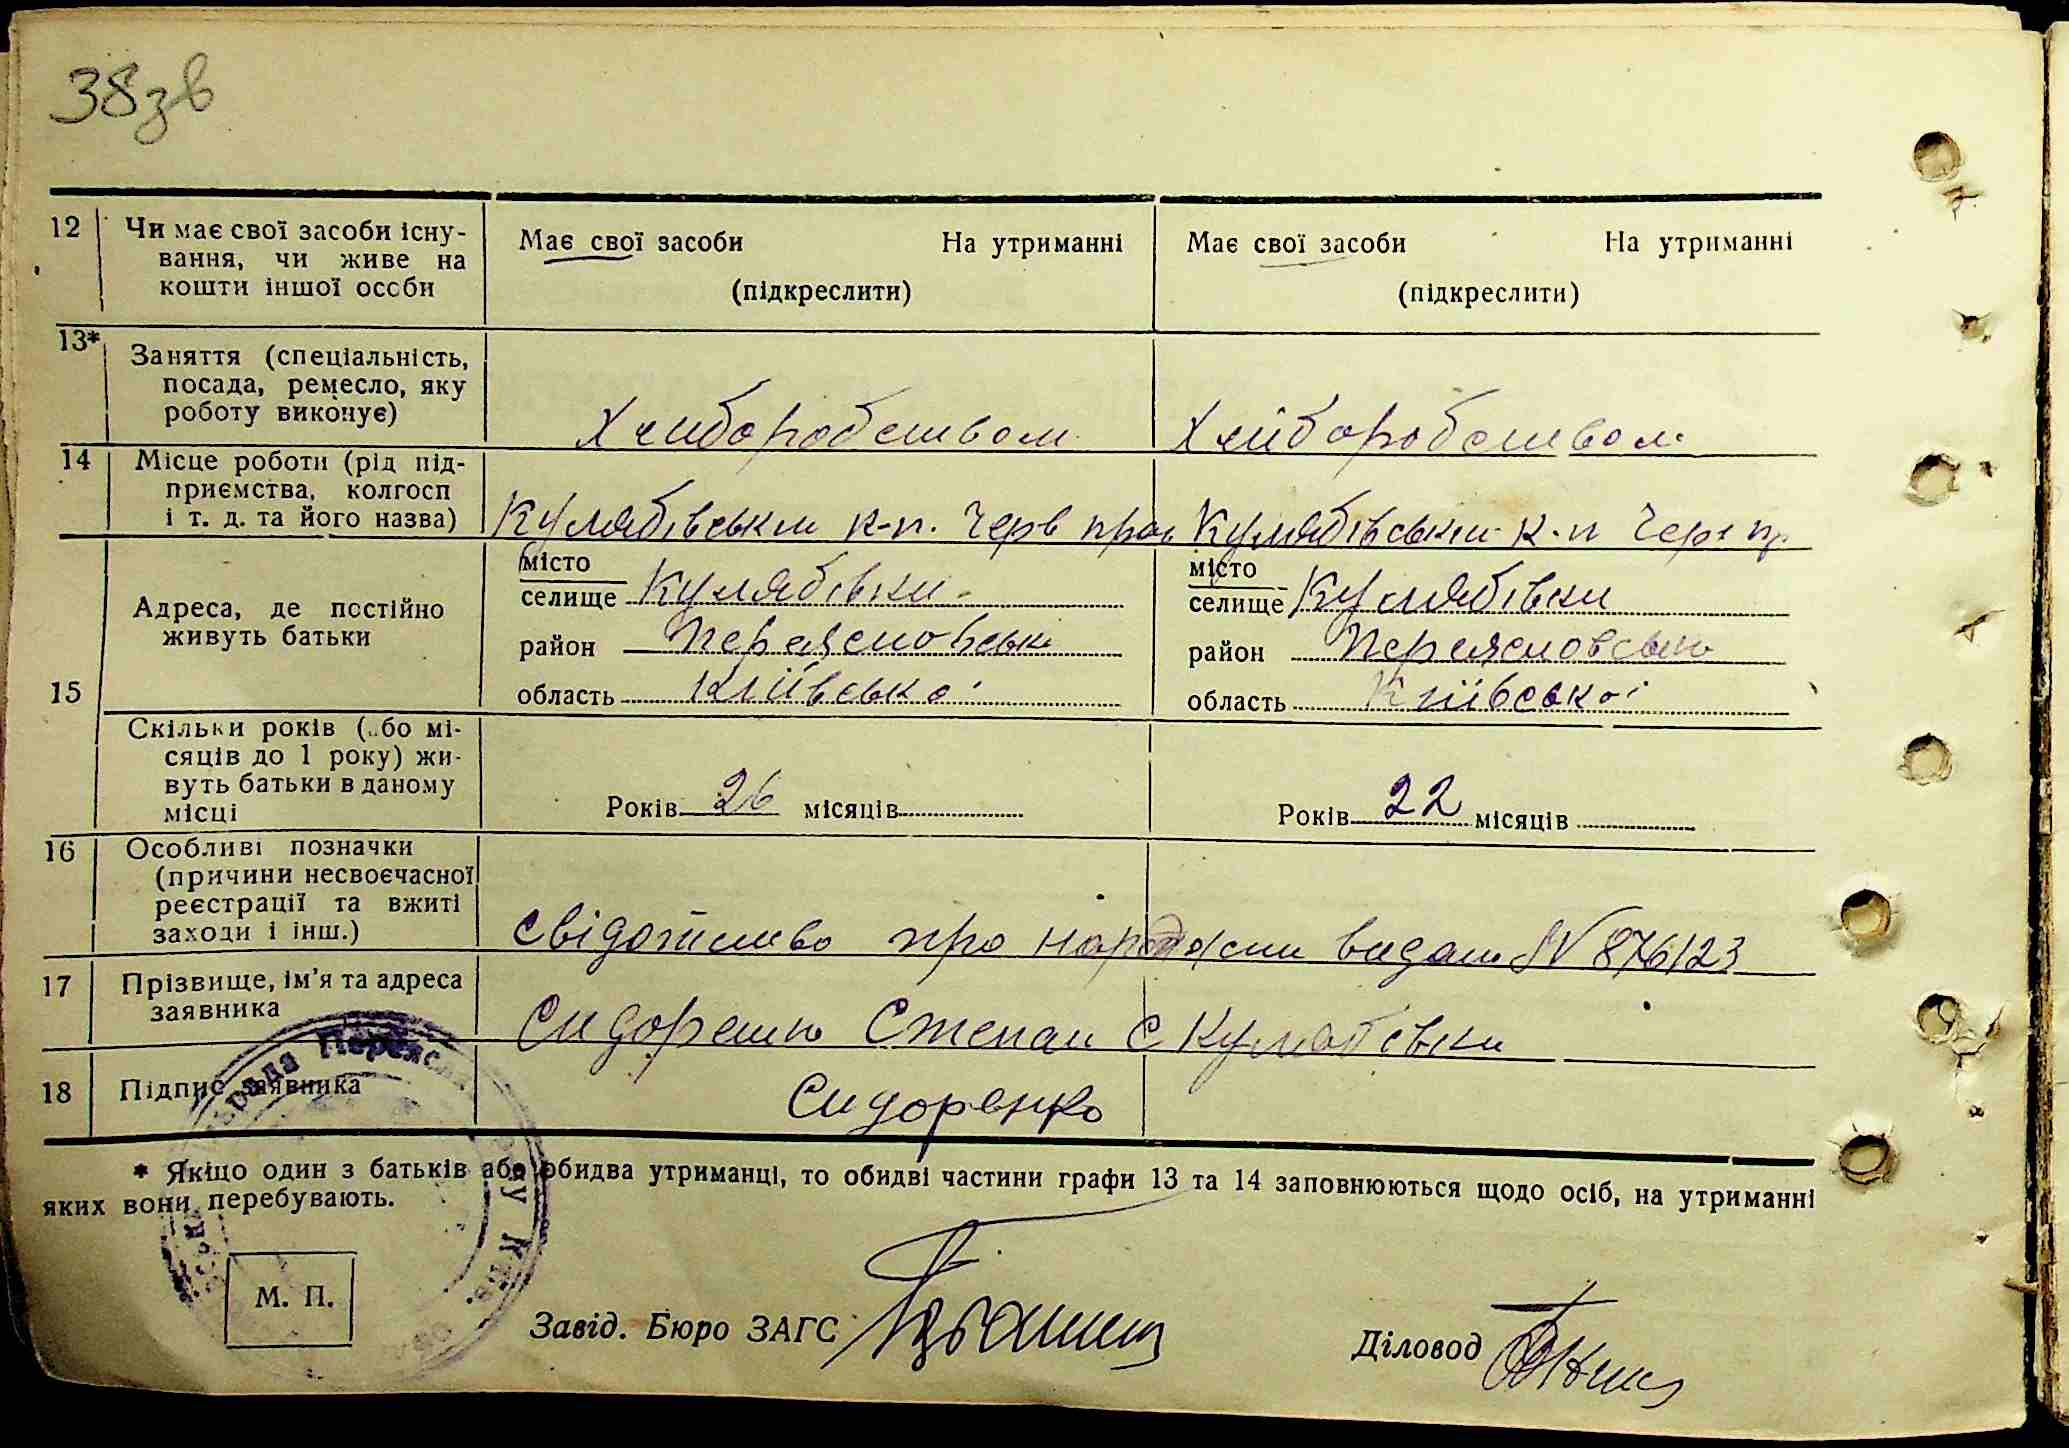 38зв
12 Чи має свої засоби існу-
вання, чи живе на
кошти іншої особи
Має свої засоби На утриманні
(підкреслити)
Має свої засоби На утриманні
(підкреслити)
13* Заняття (спеціальність,
посада, ремесло, яку
роботу виконує)
Хлиборобством
Хліборобством
14 Місце роботи (рід під-
приємства, колгосп
і т. д. та його назва)
Кулябівськи к-п. Черв прап
Кулябівськи к-п Черв пр
15 Адреса, де постійно
живуть батьки
місто
селище Кулябівки
район Переясловськ
область Київської
місто
селище Кулябівки
район Переясловськ
область Київської
Скільки років (або мі-
сяців до 1 року) жи-
вуть батьки в даному
місці
Років 26 місяців
Років 22 місяців
16 Особливі позначки
(причини несвоєчасної
реєстрації та вжиті
заходи і інш.)
свідотство про народжен видан № 876123
17 Прізвище, ім'я та адреса
заявника
Сидоренко Степан с Кулябівки
18 Підпис заявника
Сидоренко
* Якщо один з батьків або обидва утриманці, то обидві частини графи 13 та 14 заповнюються щодо осіб, на утриманні
яких вони перебувають.
М. П.
Завід. Бюро ЗАГС
Діловод